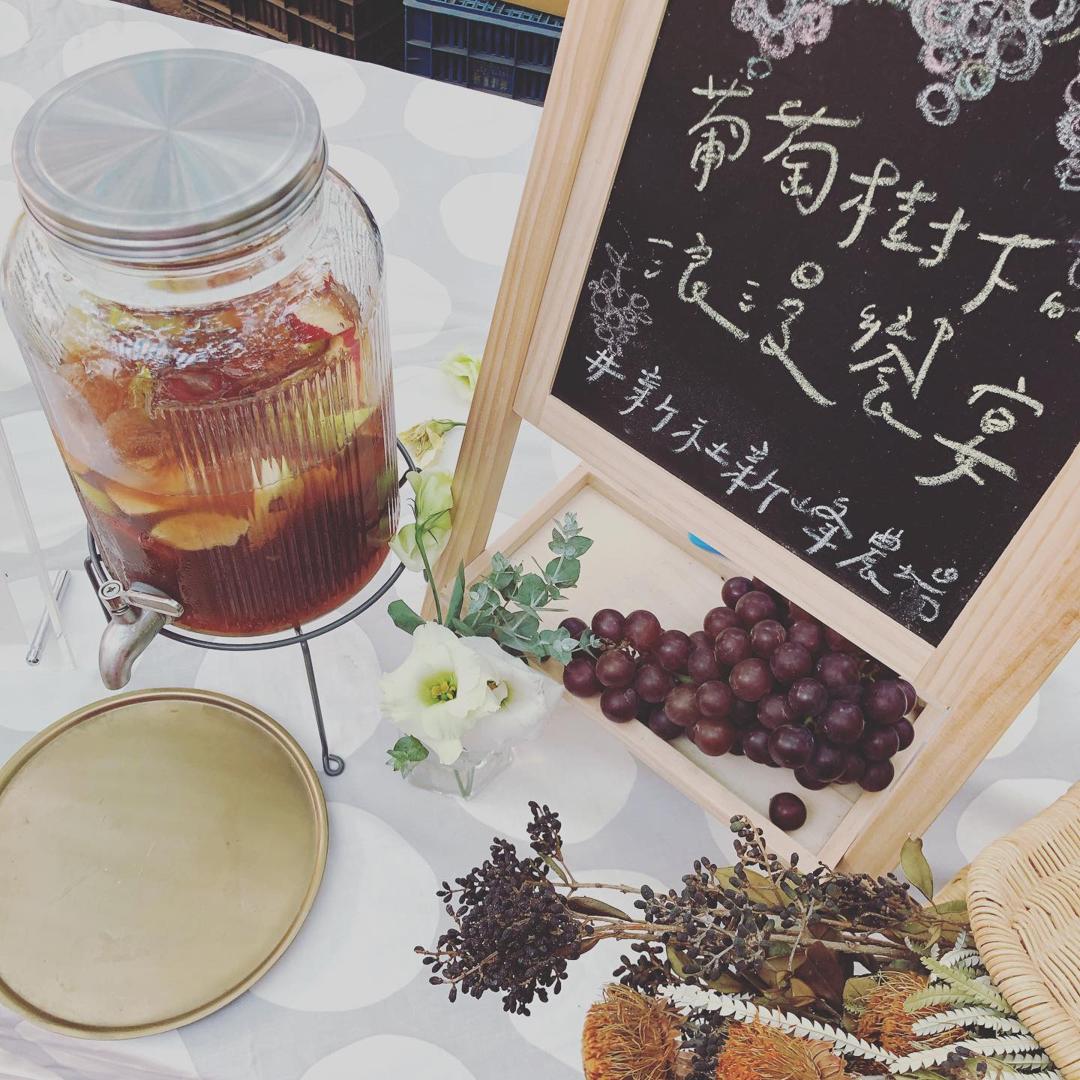 葡萄樹下的
浪漫饗宴
#新社新峰農場